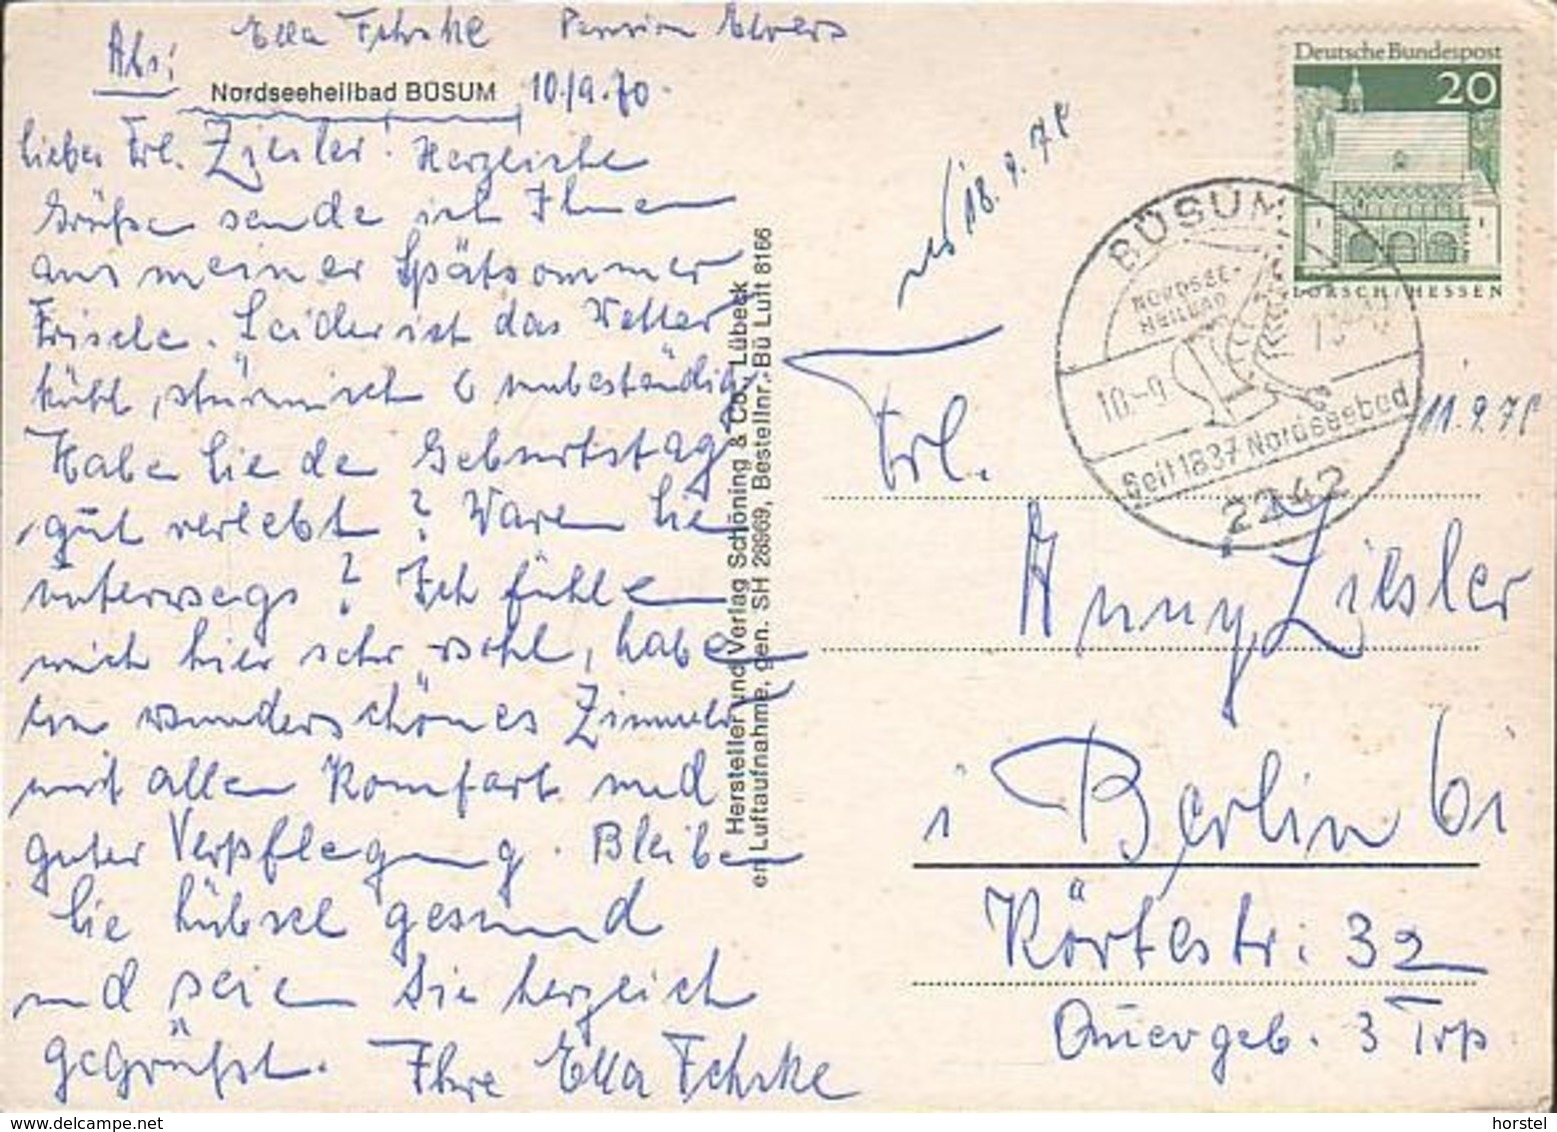 Abs: Ella Fehske Pension Elvers
Nordseeheilbad BÜSUM 10./9.70.
Liebes Frl. Ziesler. Herzliche
Grüße sende ich Ihnen
aus meiner Spätsommer
Frische. Leider ist das Wetter
kühl, stürmisch u unbeständig.
Haben Sie den Geburtstag
gut verlebt? Waren Sie
unterwegs? Ich fühle
mich hier sehr wohl, habe
ein wunderschönes Zimmer
mit allen Komfort und
guter Verpflegung. Bleiben
Sie hübsch gesund
und seien Sie herzlich
gegrüßt. Ihre Ella Fehske
Hersteller und Verlag Schöning & Co., Lübeck
en Luftaufnahme, gen. SH 28969, Bestellnr. Bü Luft 8166
18.9.70
Deutsche Bundespost
20
LORSCH/HESSEN
BÜSUM
NORDSEE-
HEILBAD
10.-9
Seit 1837 Nordseebad
2242
11.9.70
Frl.
Anny Ziesler
i Berlin 61
Körtestr. 32
Quergeb. 3 Trp
horstel